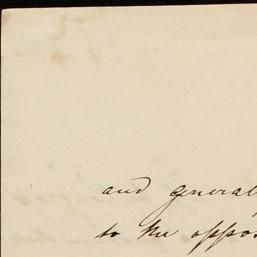 and general
to the oppos